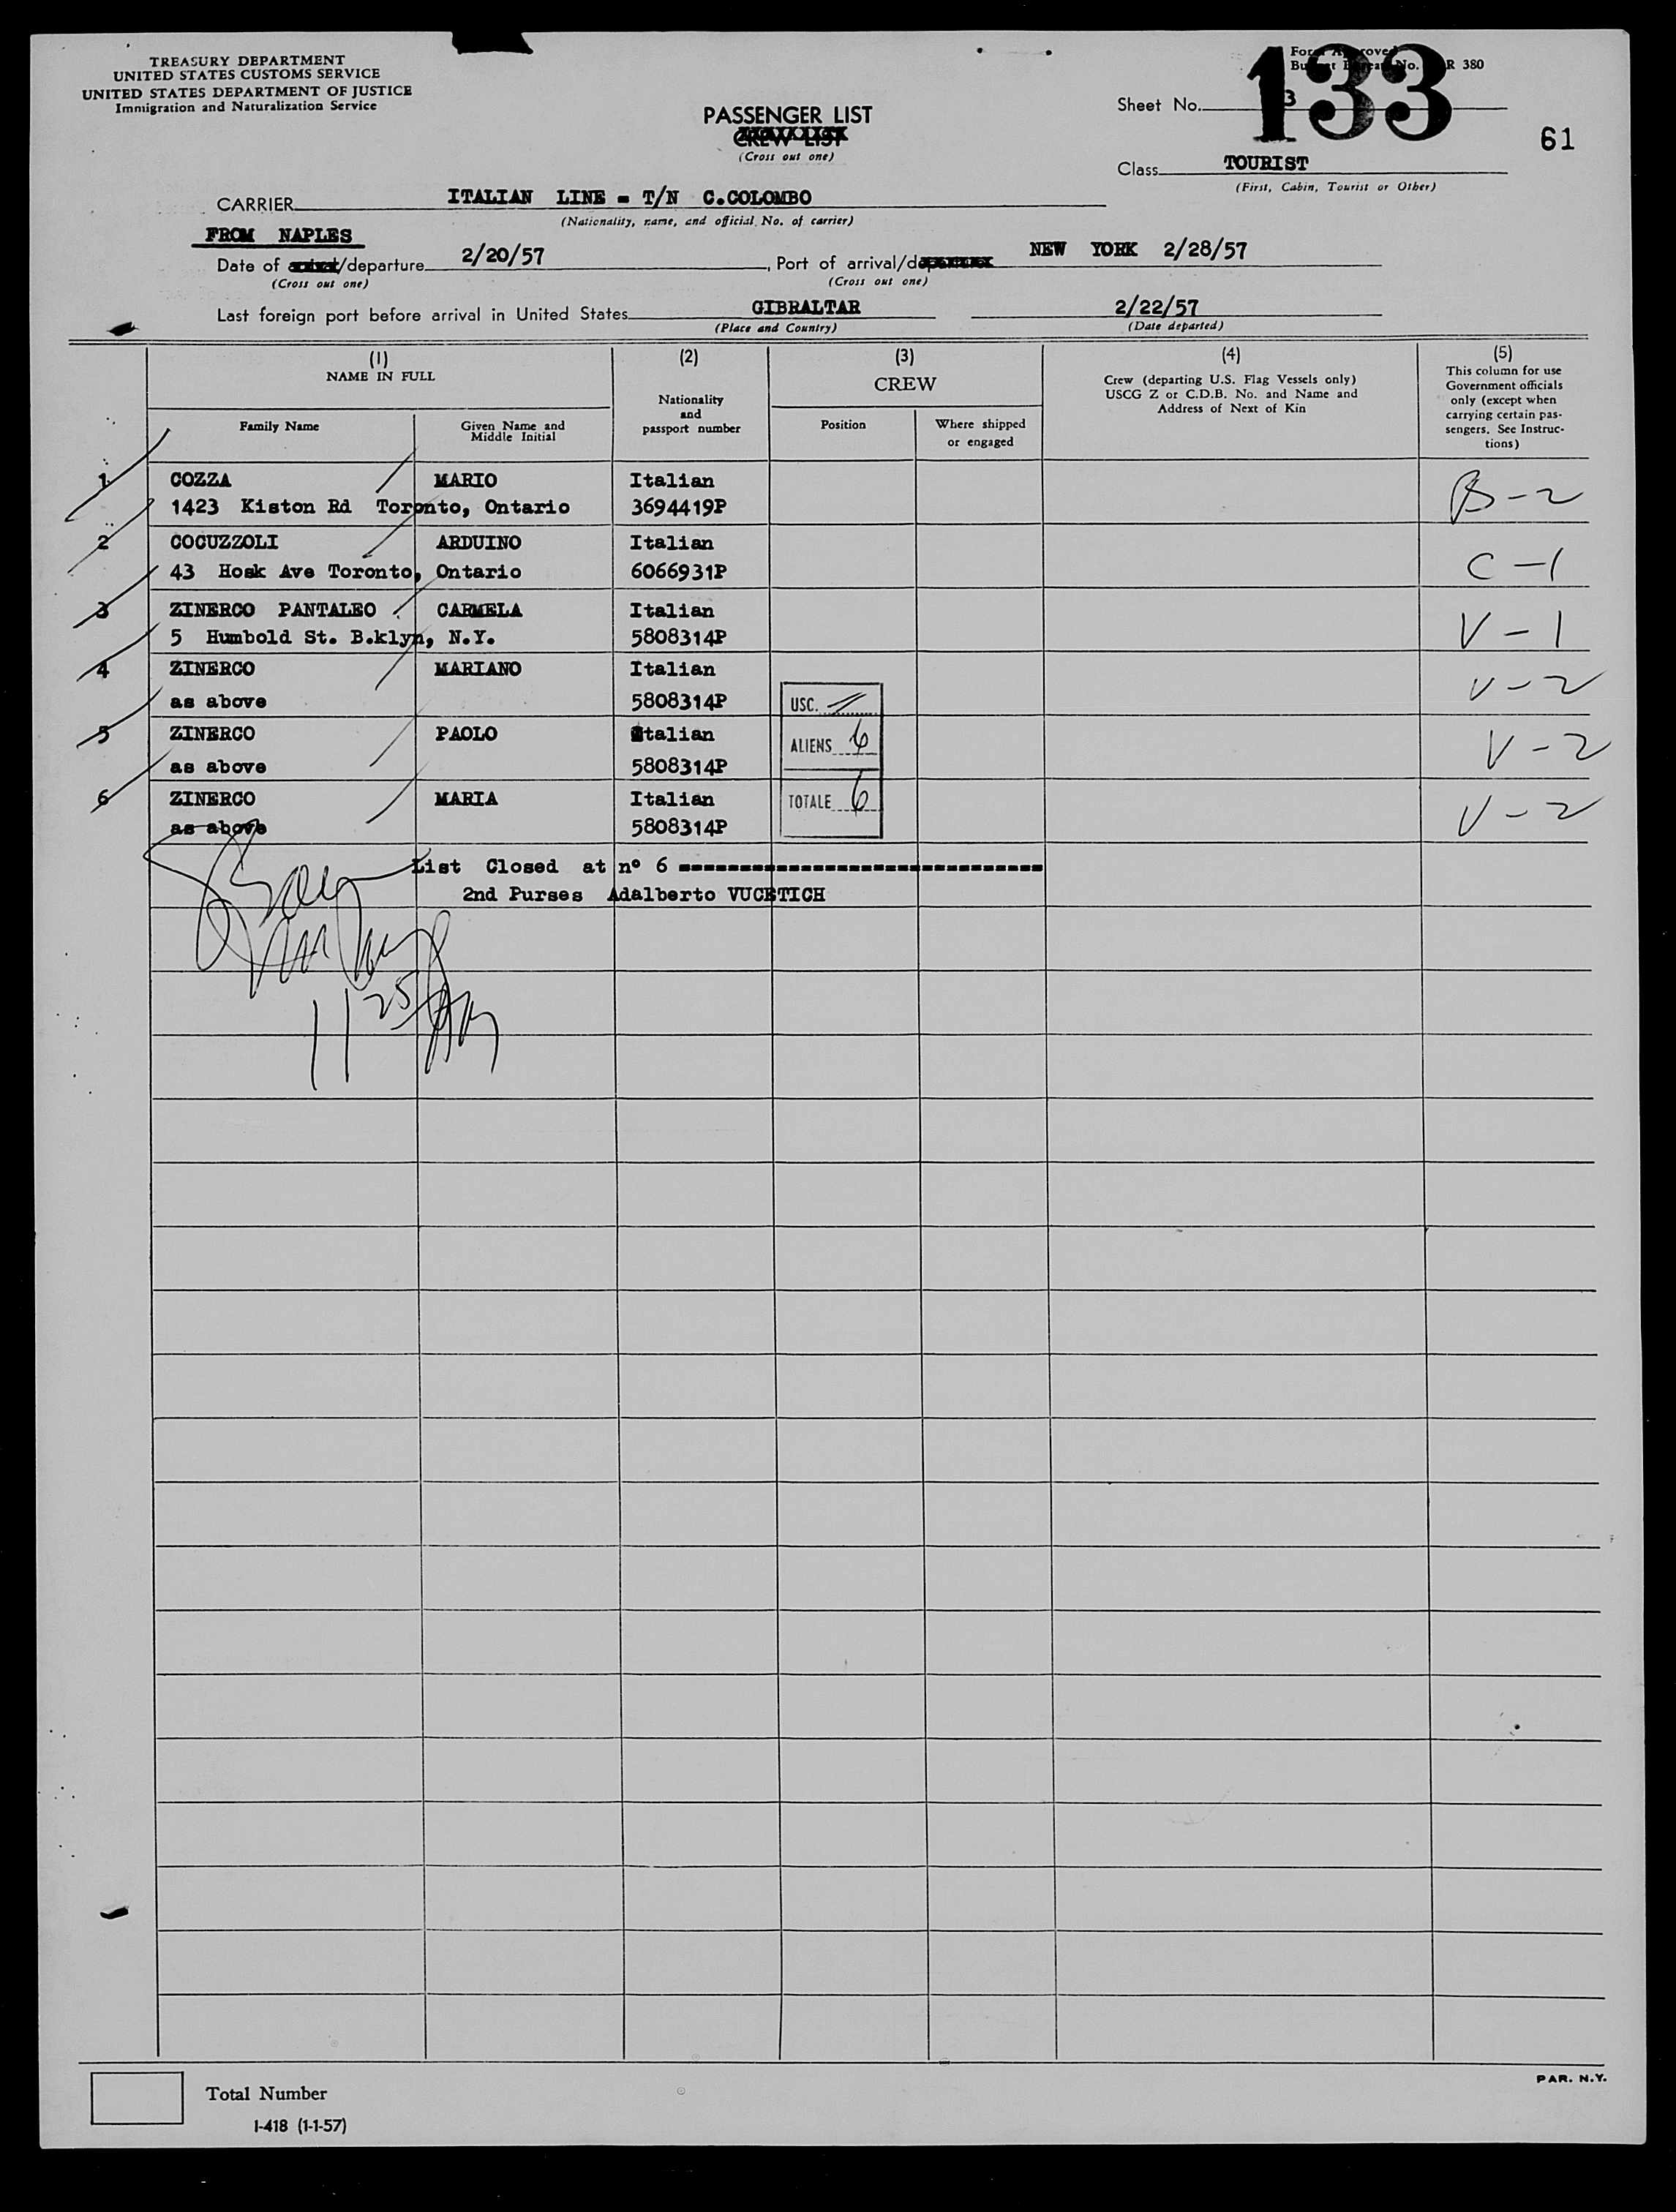 TREASURY DEPARTMENT
UNITED STATES CUSTOMS SERVICE
UNITED STATES DEPARTMENT OF JUSTICE
Immigration and Naturalization Service
R 380
133
61
PASSENGER LIST
CREW LIST
(Cross out one)
Sheet No. 3
Class TOURIST
(First, Cabin, Tourist or Other)
CARRIER ITALIAN LINE - T/N C.COLOMBO
(Nationality, name, and official No. of carrier)
FROM NAPLES
Date of arrival/departure 2/20/57, Port of arrival/departure NEW YORK 2/28/57
(Cross out one) (Cross out one)
Last foreign port before arrival in United States GIBRALTAR 2/22/57
(Place and Country) (Date departed)
(1) (2) (3) (4) (5)
NAME IN FULL
Nationality
and
passport number
CREW
Crew (departing U.S. Flag Vessels only)
USCG Z or C.D.B. No. and Name and
Address of Next of Kin
This column for use
Government officials
only (except when
carrying certain pas-
sengers. See Instruc-
tions)
Family Name
Given Name and
Middle Initial
Position
Where shipped
or engaged
1 COZZA MARIO Italian B-2
1423 Kiston Rd Toronto, Ontario 3694419P
2 COCUZZOLI ARDUINO Italian C-1
43 Hosk Ave Toronto, Ontario 6066931P
3 ZINERCO PANTALEO CARMELA Italian V-1
5 Humbold St. B.klyn, N.Y. 5808314P
4 ZINERCO MARIANO Italian V-2
as above 5808314P
5 ZINERCO PAOLO Italian V-2
as above 5808314P
6 ZINERCO MARIA Italian V-2
as above 5808314P
USC.
ALIENS 6
TOTALE 6
List Closed at n° 6 -----------------------------
2nd Purses Adalberto VUCETICH
11 25 AM
Total Number
I-418 (1-1-57)
PAR. N.Y.